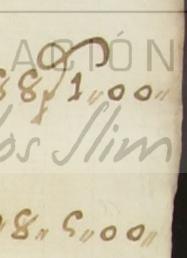 ACIÓN
881"00"
os Slim
"8"5"00"